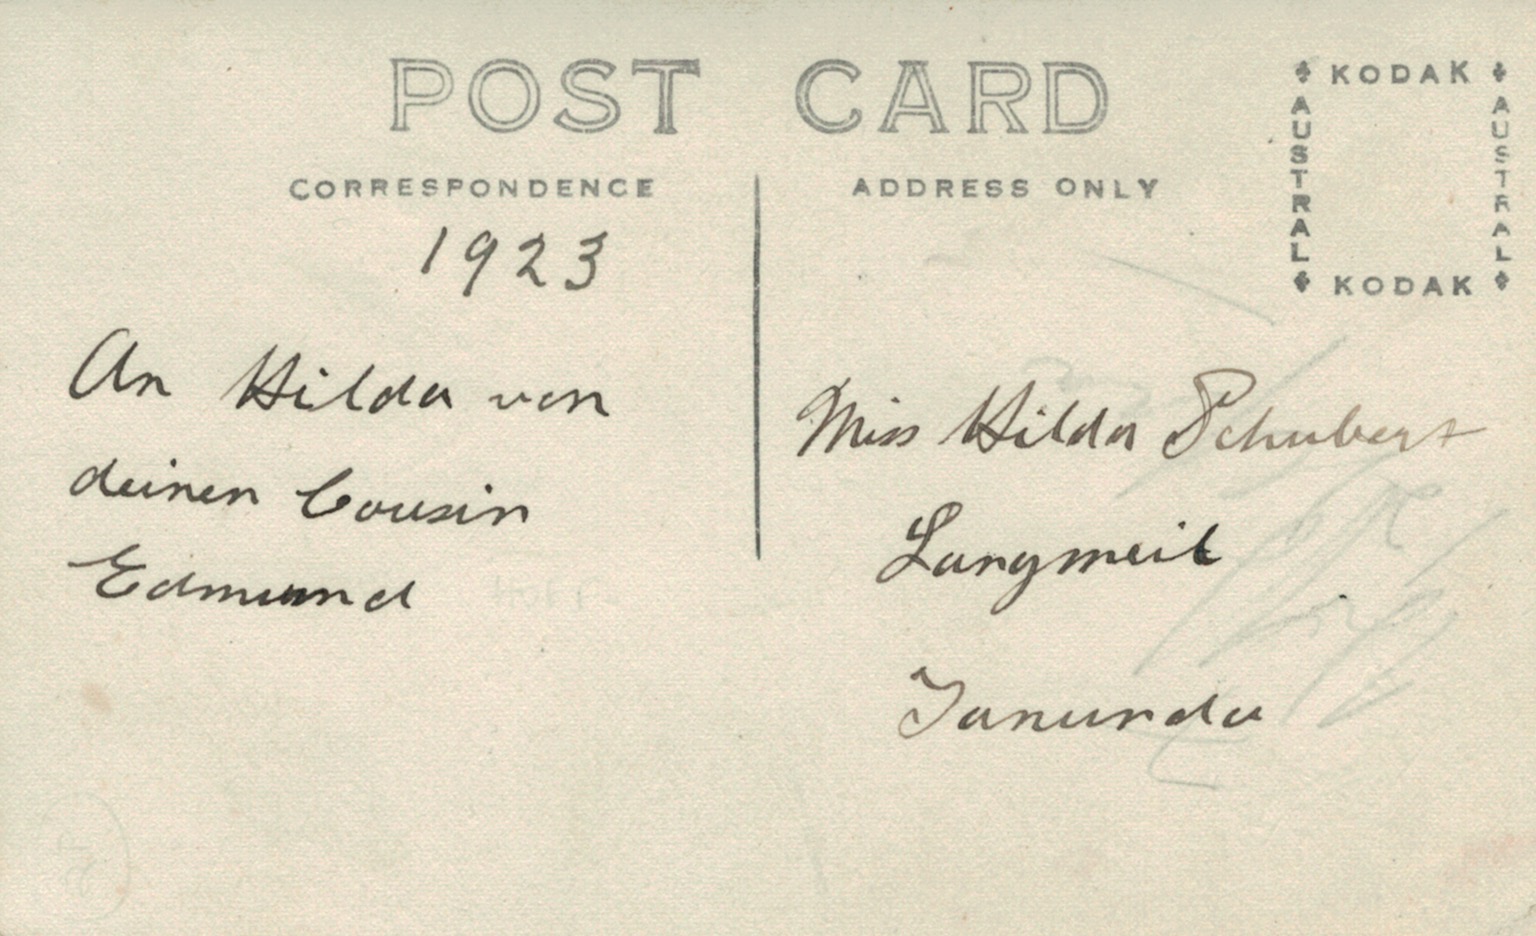 POST CARD
CORRESPONDENCE
1923
An Hilda von
deinen Cousin
Edmund
ADDRESS ONLY
Miss Hilda Schubert
Langmeil
Tanunda
KODAK
AUSTRAL
AUSTRAL
KODAK